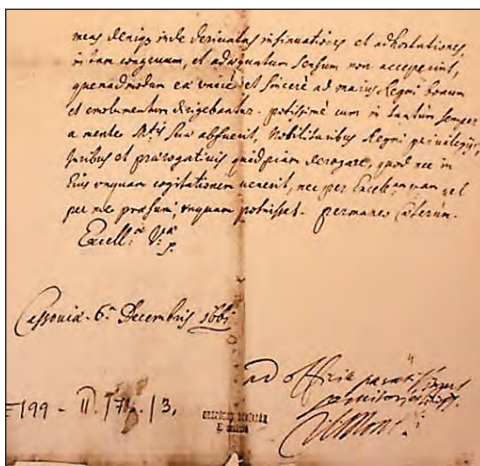 meas denique inde derivatas insinuationes et adhortationes,
in tam congruum, et adaequatum sensum non acceperint,
quemadmodum ex unice et sincere ad maius Regni bonum
et emolumentum dirigebantur. potissime cum in tantum semper
a mente Mtis Suae abfuerit, Nobilitaribus Regni privilegijs,
Juribus et praerogativis quidpiam derogare, quod nec in
Eius unquam cogitationem venerit, nec per Excell vram vel
per me praesumi, unquam potuisset. permaneo Caeterum.
Excell: Vrae
Cassoviae 6 Decembris 166
ad officia paratissimus
E199 - II. / 74. / 3.
ORSZÁGOS LEVÉLTÁR